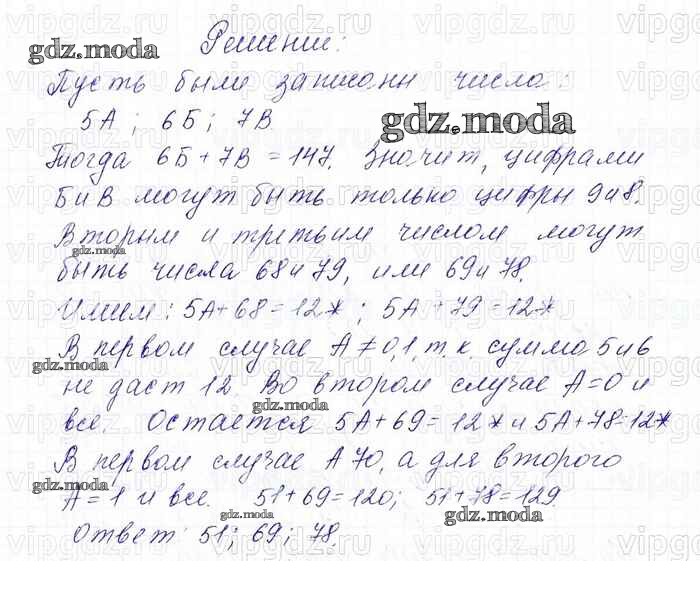 Решение:
Пусть были записаны числа:
5А; 6Б; 7В
Тогда 6Б+7В=147. Значит, цифрами
Б и В могут быть только цифры 9 и 8.
Вторым и третьим числом могут
быть числа 68 и 79, или 69 и 78.
Имеем: 5А+68=12*; 5А+79=12*
В первом случае А≠0,1, т.к. сумма 5 и 6
не даст 12. Во втором случае А=0 и
все. Остается 5А+69=12* и 5А+78=12*
В первом случае А70, а для второго
А=1 и все. 51+69=120; 51+78=129.
Ответ: 51; 69; 78.
gdz.moda
gdz.moda
gdz.moda
gdz.moda
gdz.moda
gdz.moda
gdz.moda
gdz.moda
vipgdz.ru